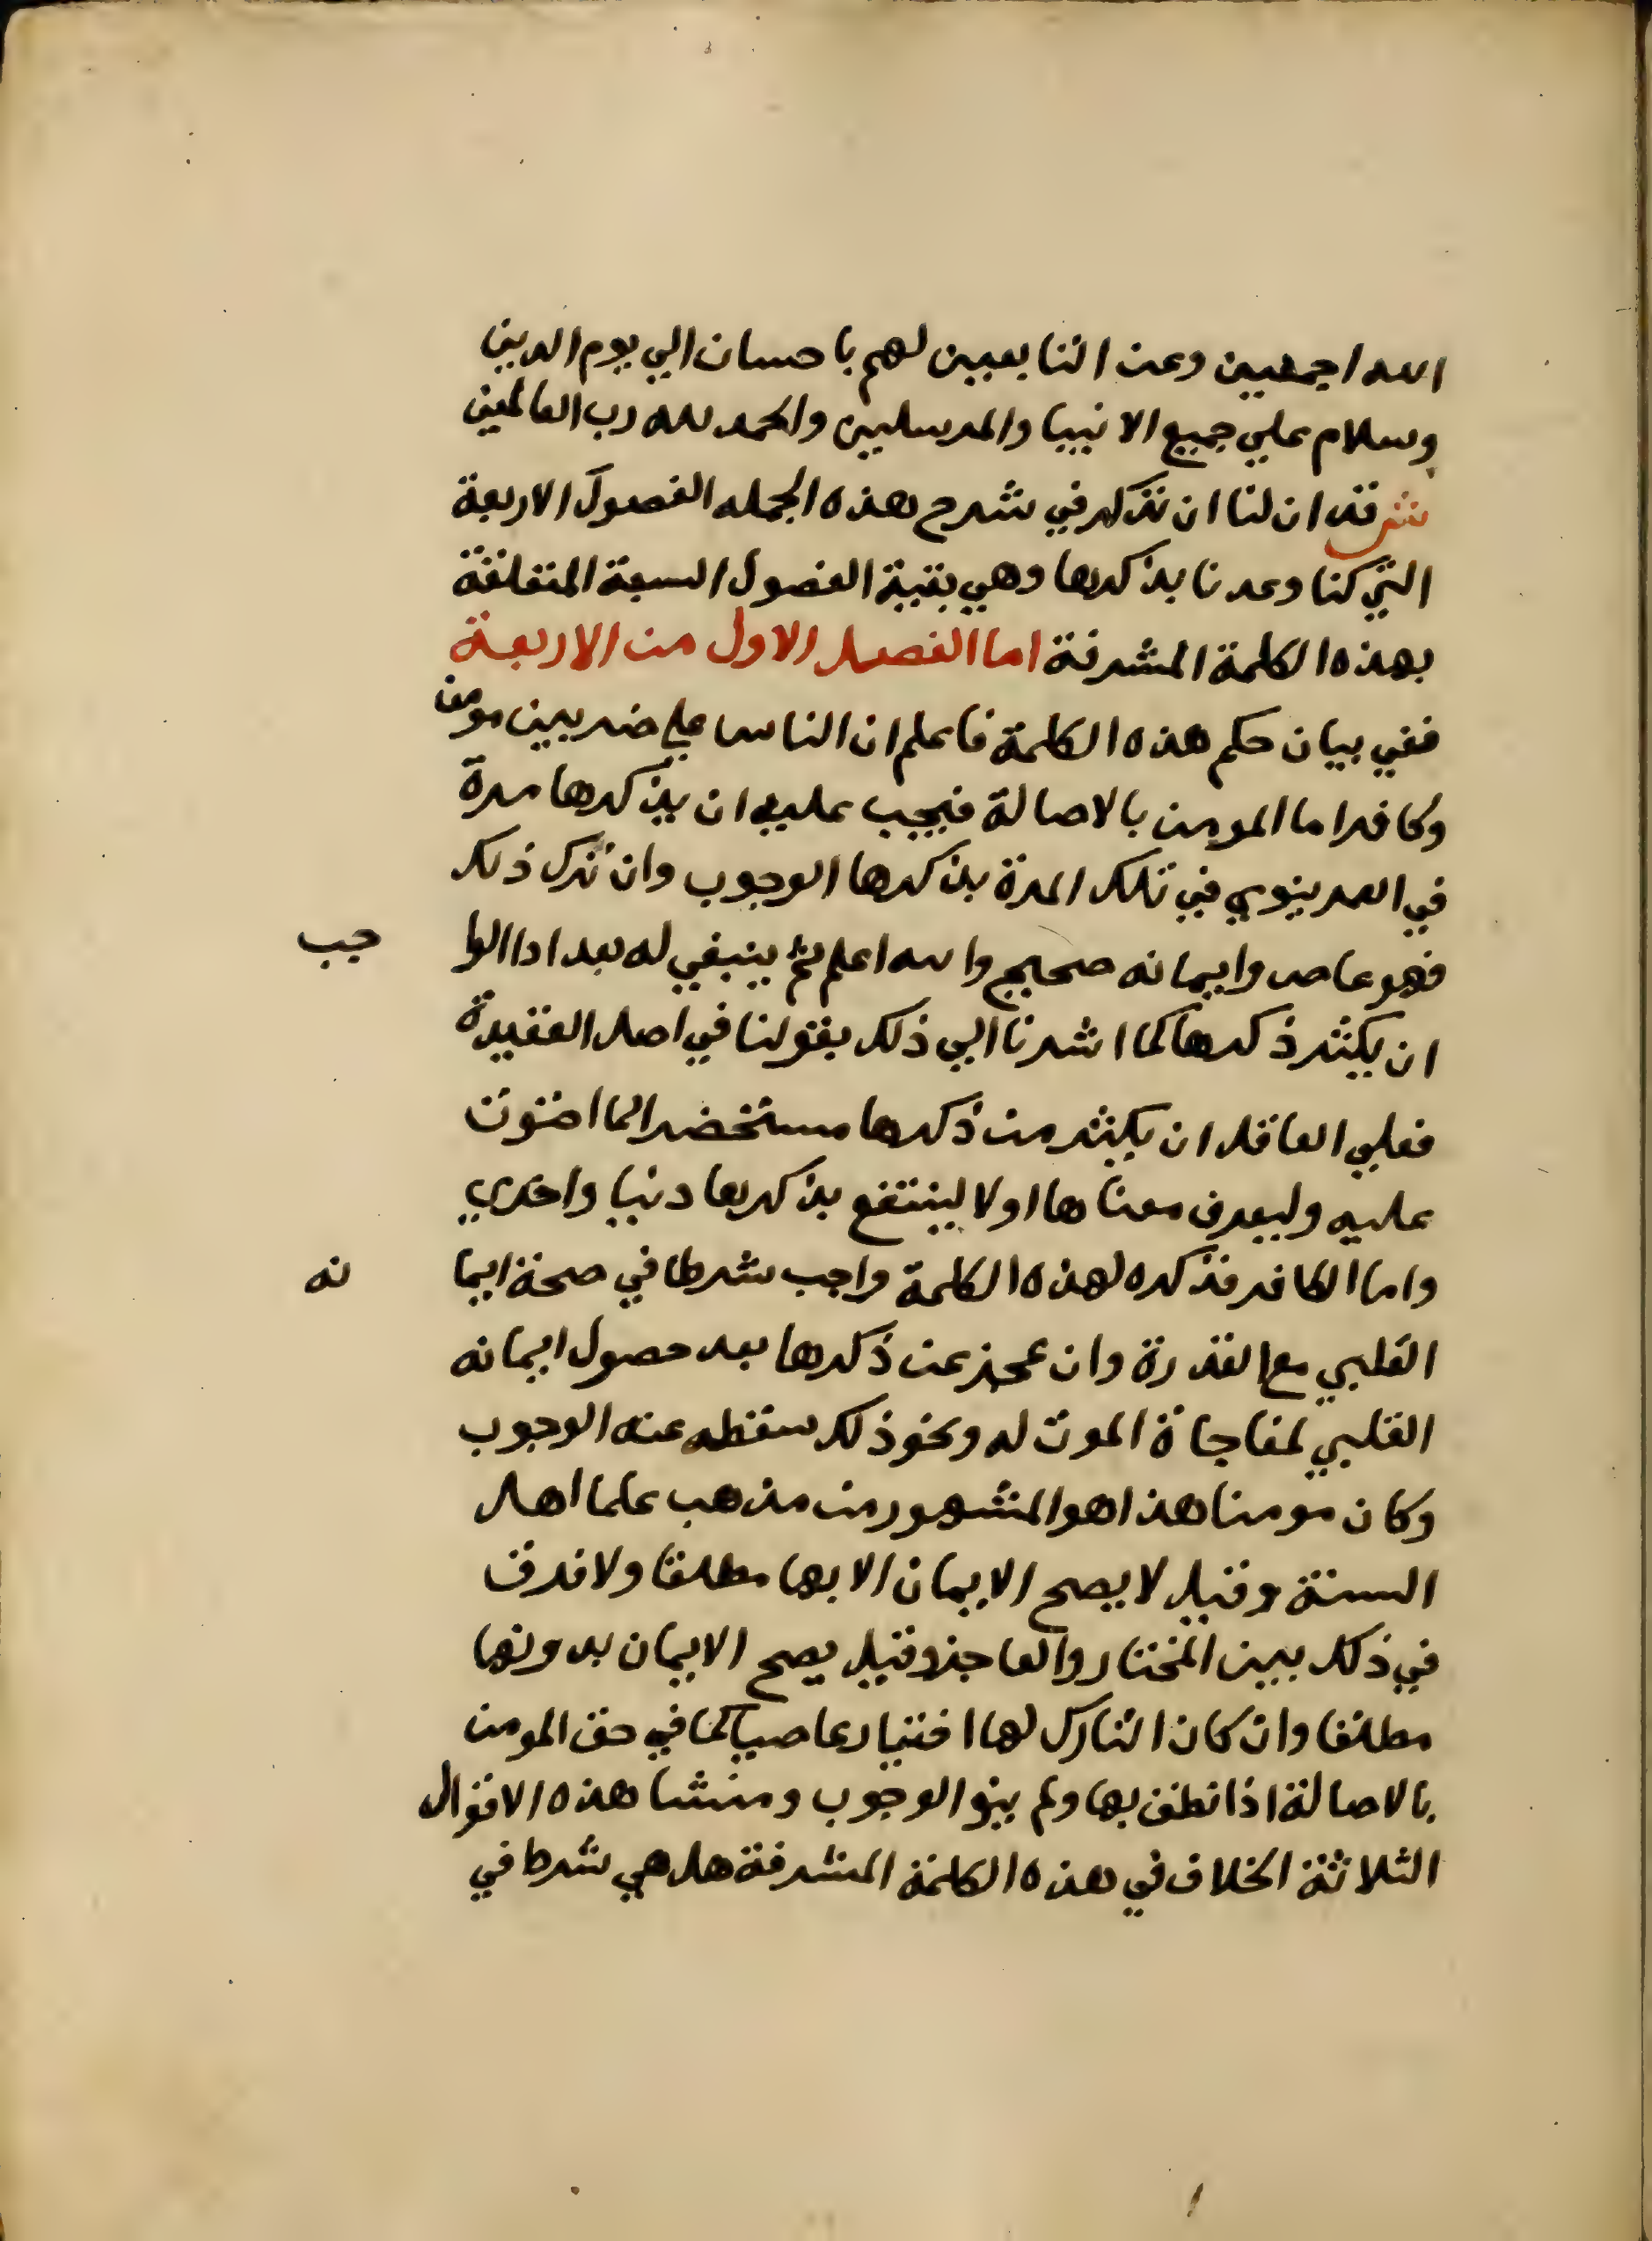 الله اجمعين وعن التابعين لهم باحسان الي يوم الدين
وسلام علي جميع الانبيا والمرسلين والحمد لله رب العالمين
ش قد ان لنا ان نذكر في شرح هذه الجمله الفصول الاربعة
التي كنا وعدنا بذكرها وهي بقية الفصول السبعة المتعلقة
بهذه الكلمة المشرفة اما الفصل الاول من الاربعة
ففي بيان حكم هذه الكلمة فاعلم ان الناس علي ضربين مومن
وكافر اما المومن بالاصالة فيجب عليه ان يذكرها مرة
في العمر ينوي في تلك المرة بذكرها الوجوب وان ترك ذلك
فهو عاص وايمانه صحيح والله اعلم ثم ينبغي له بعد ادا الواجب
ان يكثر ذكرها كما اشرنا الي ذلك بقولنا في اصل العقيدة
فعلي العاقل ان يكثر من ذكرها مستحضرا لما احتوت
عليه وليعرف معناها اولا لينتفع بذكرها دنيا واخري
واما الكافر فذكره لهذه الكلمة واجب شرط في صحة ايمانه
القلبي مع القدرة وان عجز عن ذكرها بعد حصول ايمانه
القلبي لمفاجاة الموت له ونحو ذلك سقط عنه الوجوب
وكان مومنا هذا هو المشهور من مذهب علما اهل
السنة وقيل لا يصح الايمان الا بها مطلقا ولا فرق
في ذلك بين المختار والعاجز وقيل يصح الايمان بدونها
مطلقا وان كان التارك لها اختيارعاصيا كما في حق المومن
بالاصالة اذا نطق بها ولم ينو الوجوب ومنشا هذه الاقوال
الثلاثة الخلاف في هذه الكلمة المشرفة هل هي شرط في